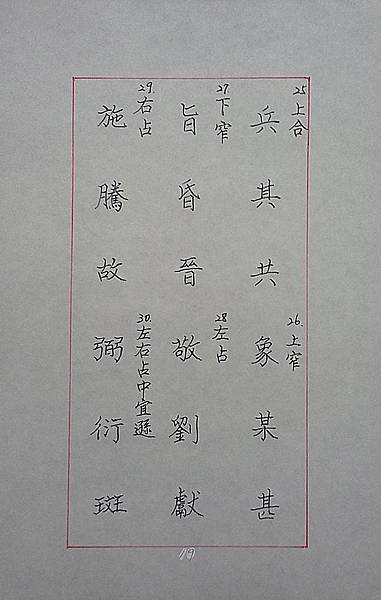 25.上合
兵其共
26.上窄
象某甚
27下窄
旨昏晉
28左占
敬劉獻
29.右占
施騰故
30.左右占中宜遜
弼衍斑
19